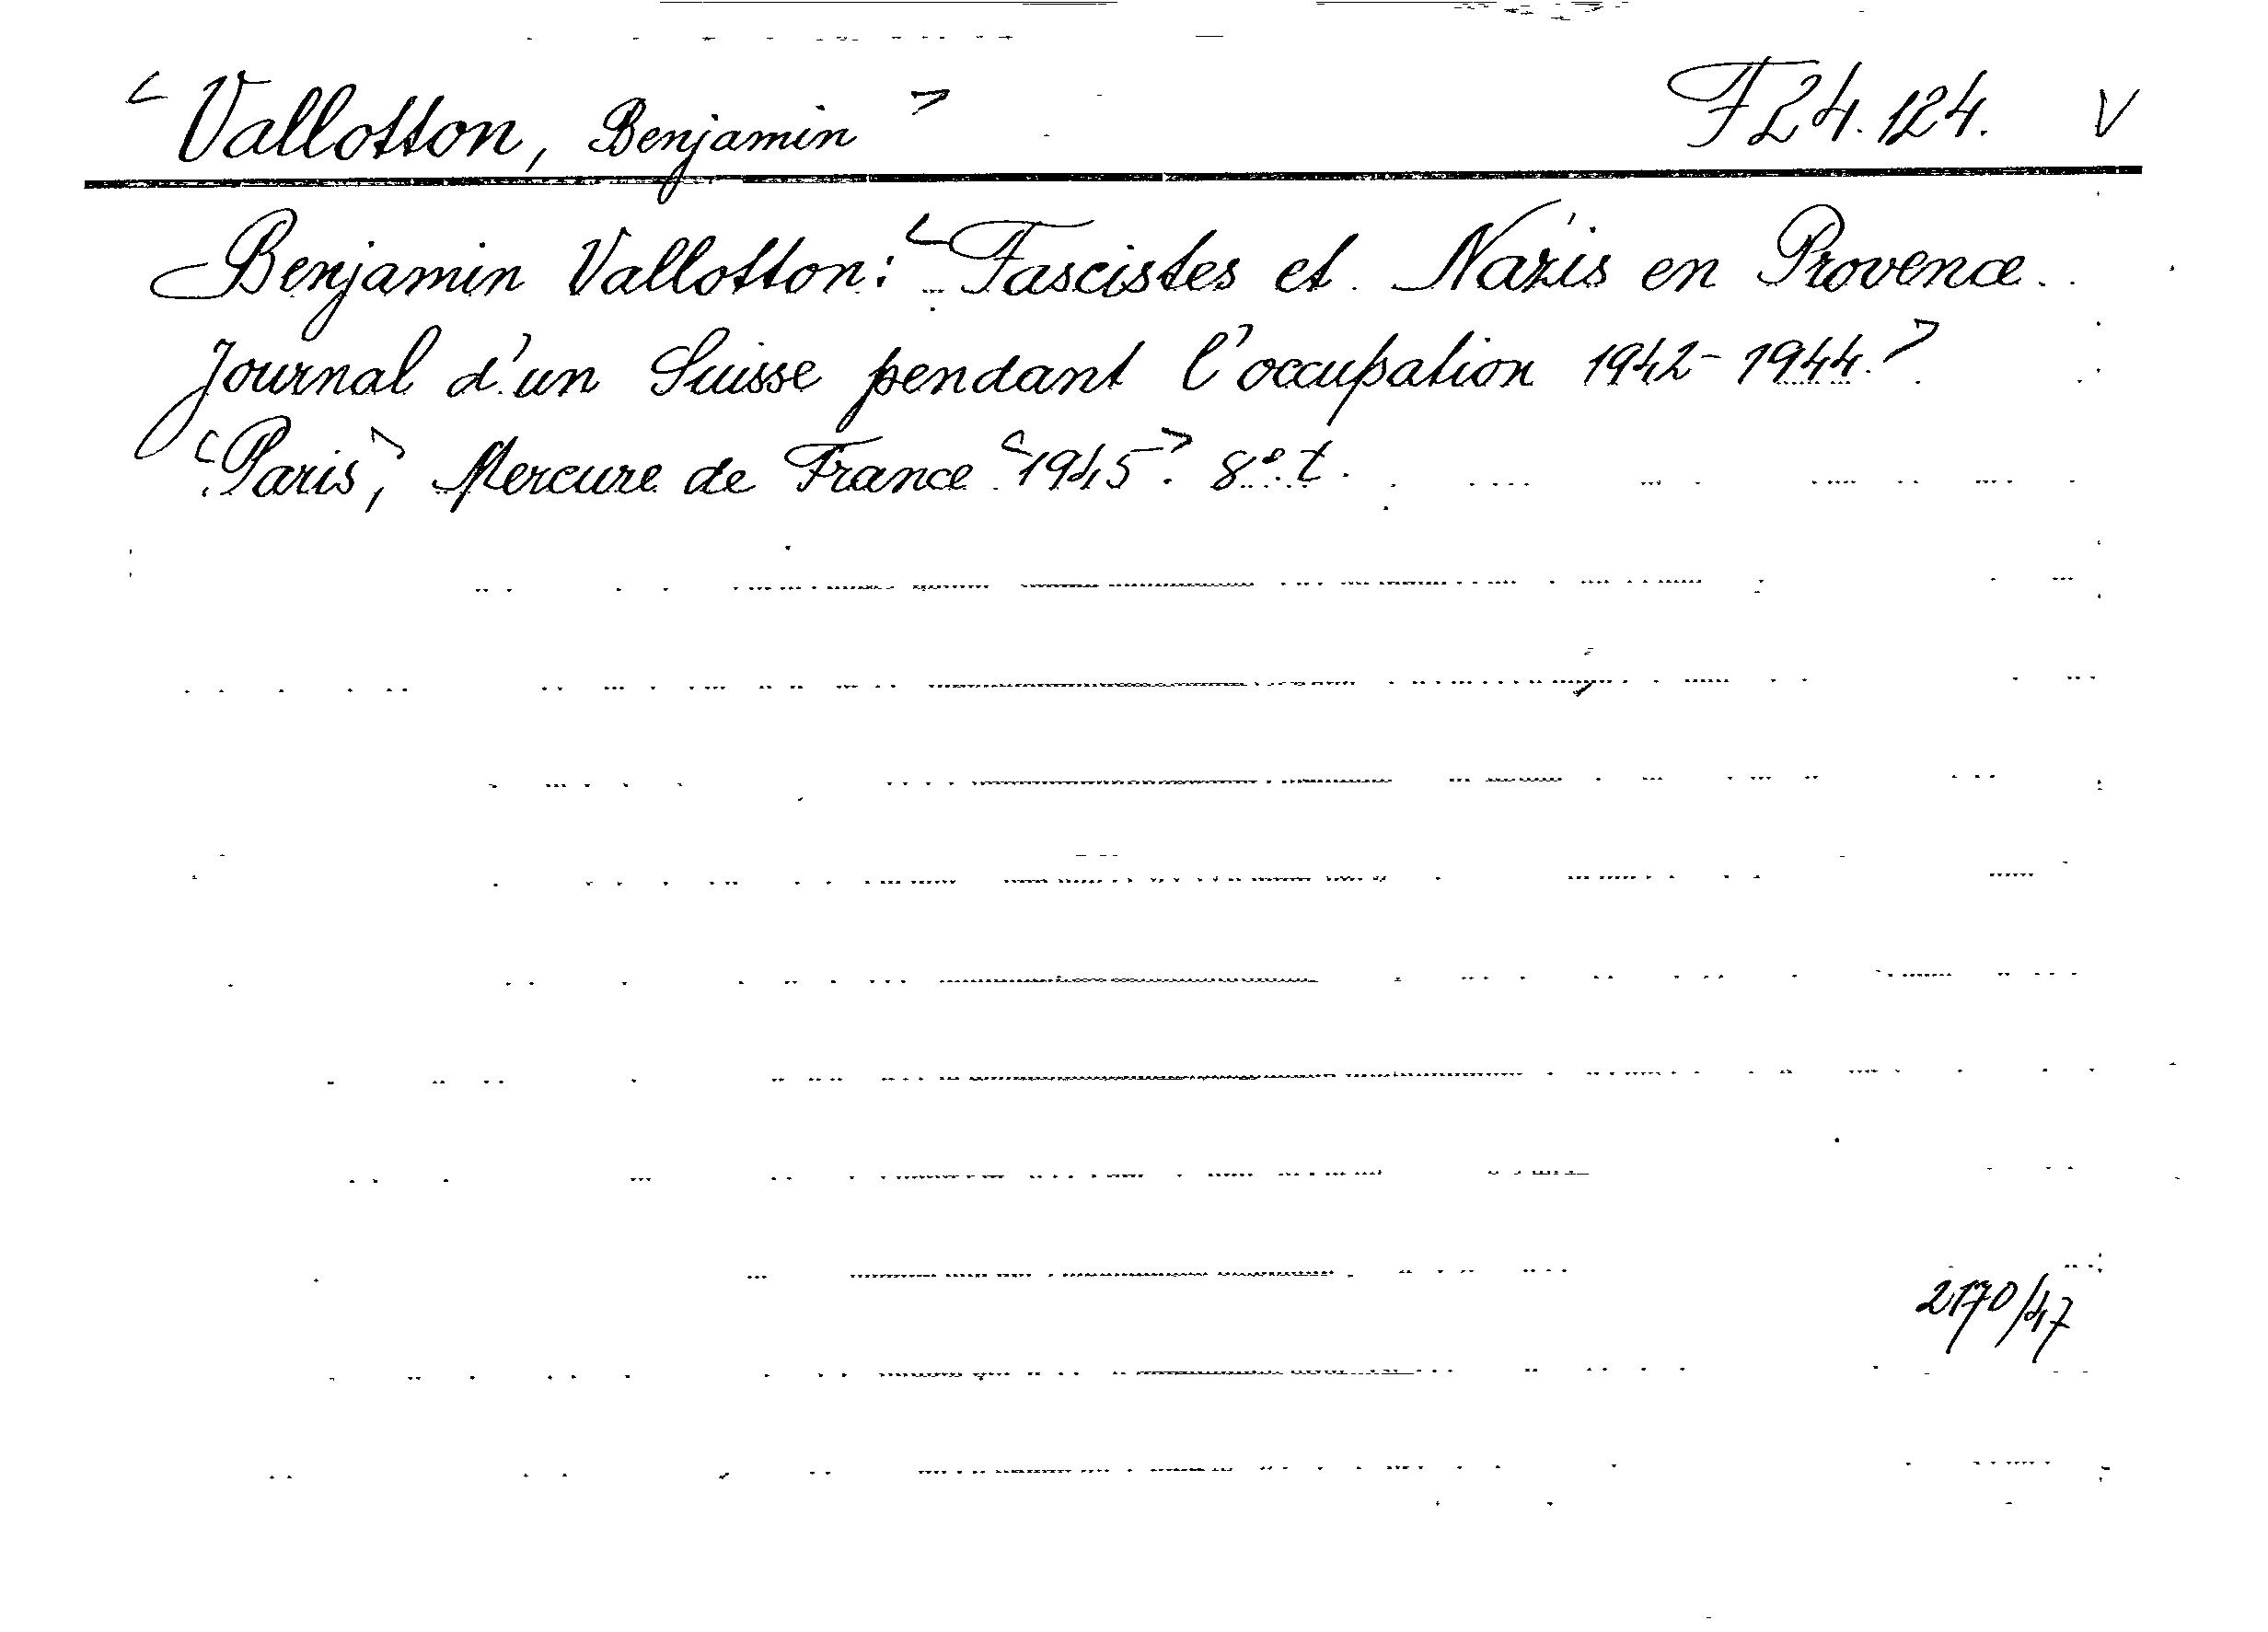 <Vallotton, Benjamin> F24.124. V
Benjamin Vallotton: <Fascistes et Nazis en Provence.
Journal d'un Suisse pendant l'occupation 1942-1944.>
<Paris>, Mercure de France <1945>. 8°. t.
2170/47